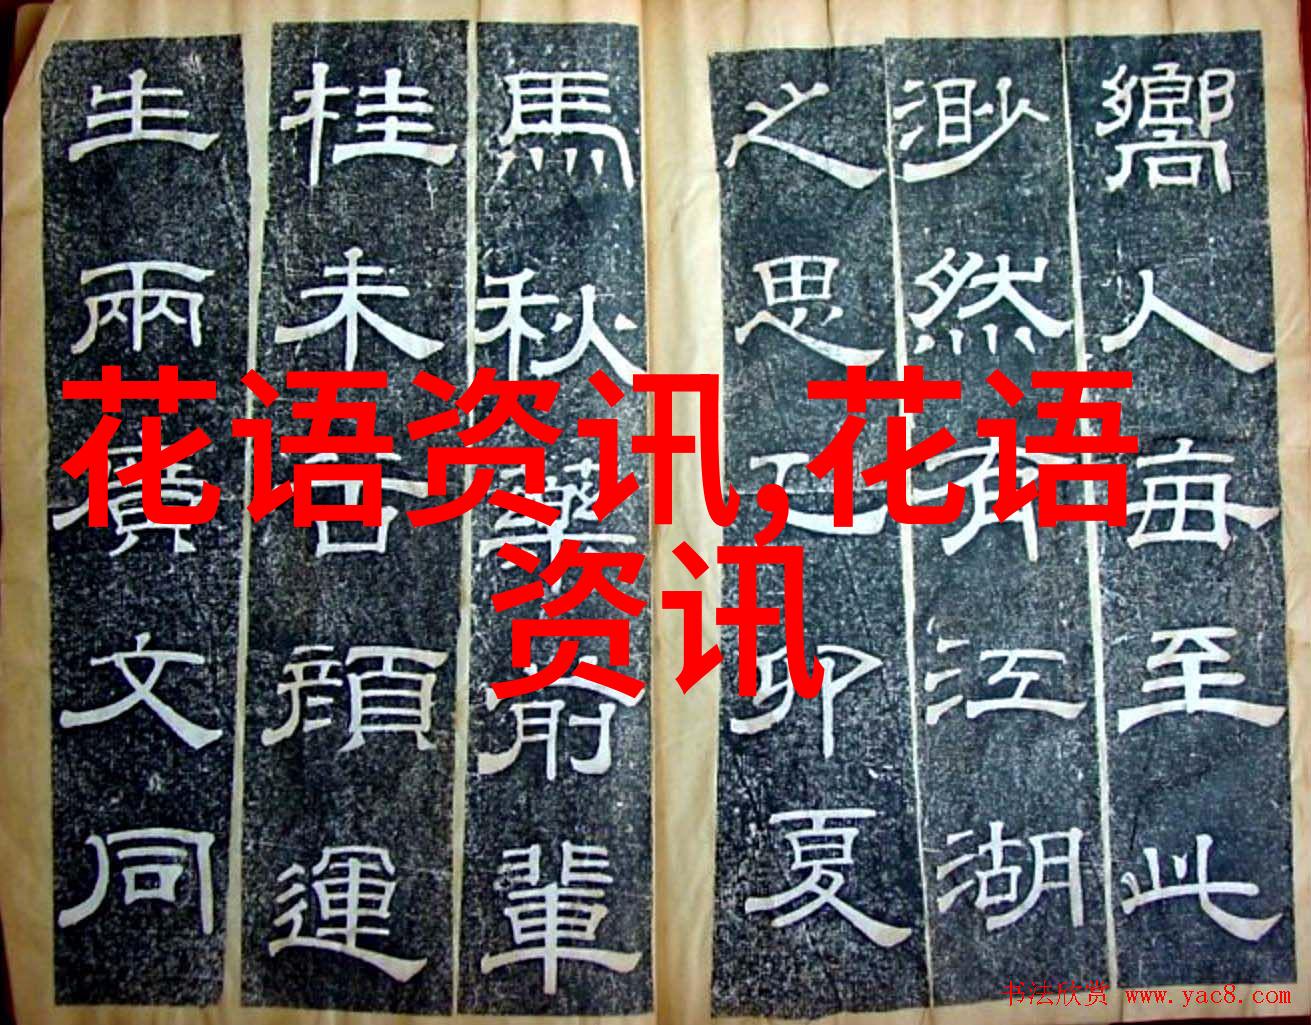 嚮人每至此
渺然有江湖
之思乙卯夏
馬秋藥前輩
桂未谷顏運
生兩廣文同
花语资讯,花语
资讯
书法欣赏 www.yac8.com